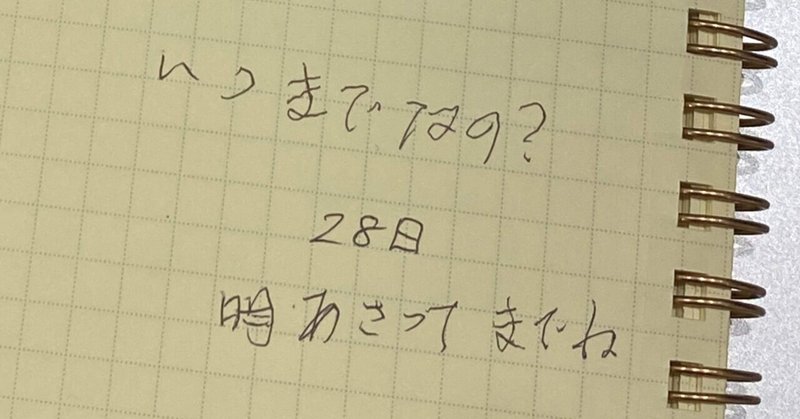 いつまでなの?
28日
明あさってまでね